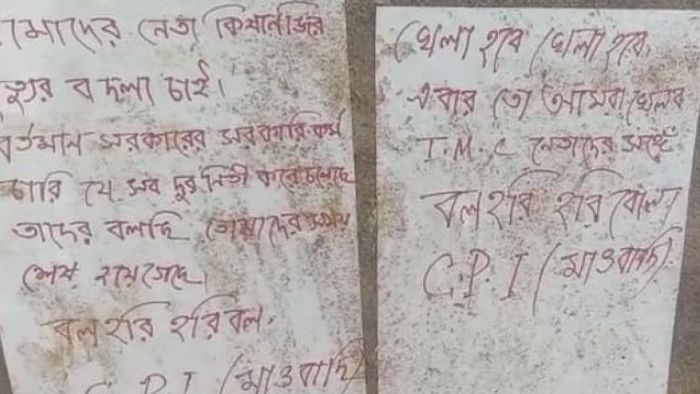 আমাদের নেতা কিষানজির
মৃত্যুর বদলা চাই।
বর্তমান সরকারের সরকারি কর্ম
চারি যে সব দুর্নিতী করে চলেছে
তাদের বলছি তোমাদের সময়
শেষ হয়ে গেছে।
বল হরি হরি বল.
C.P.I (মাওবাদি)
খেলা হবে খেলা হবে,
এবার তো আমরা খেলব
T.M.C নেতাদের সঙ্গে
বল হরি হরি বোল
C.P.I (মাওবাদী)